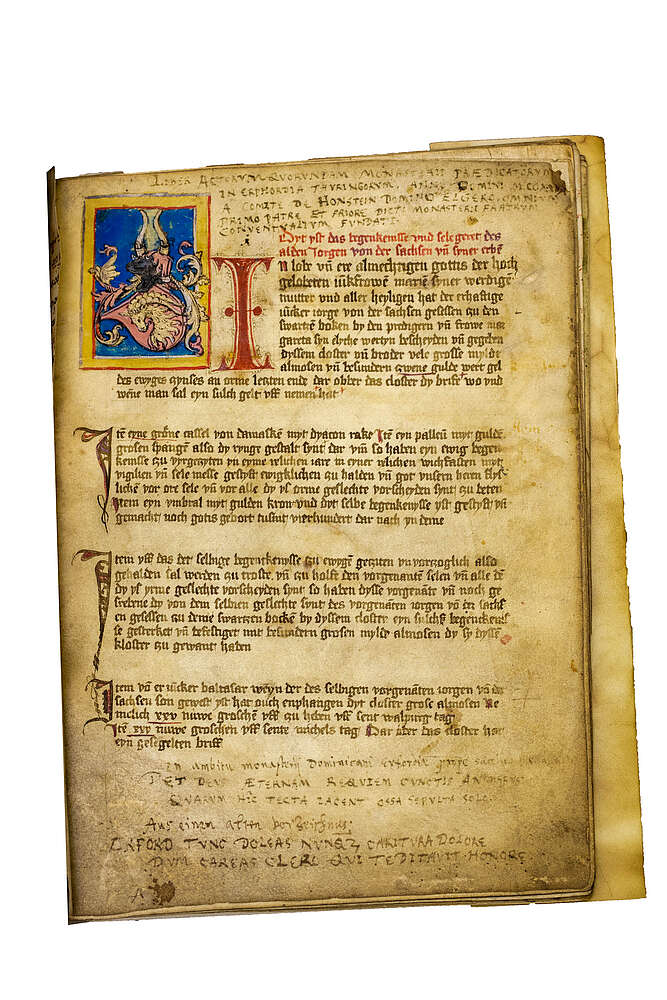 Libri Actorum quorundam Monasterii Prædicatorum
in Erphordia Thuringorum, Anno Domini
a Comite de Honstein Domino Elgero, omnium
primo Patre et Priore dicti monasterii fratrum
conventualium fundate
Dyt yst das begenkenisse vnd selegeret des
alden Jorgen von der sachsen vn̄ syner erbē
IN lobe vn̄ ere almechtigen gottis der hoch
gelobeten iūkfrowē marien̄ syner werdigē
mutter vnd aller heyligen hat der erhaftige
iūcker iorge von der sachsen gesessen zu den
swartē boken by den predigern vn̄ frowe mar
gareta syn elyche wertyn bescheyden vn̄ gegeben
dyssem closter vn̄ broder vele grosse myldē
almosen vn̄ besundern zwene guldē wert gel
des ewyges zynses an orme lenzten ende dar obber das closter dy brife wo vnd
wēne man sal eyn sulch gelt vff nemen hat
Itē eyne grōne cassel von damaskē myt dyacon rake Itē eyn pallen̄ myt guldē
grosen spangē also dy rynge gestalt synt dar vm̄ so haben eyn ewig begen
kenisse zu vyrgezyten yn eyme iclichen iare in eyner iclichen wichfasten myt
vigilien vn̄ sele messe gestyft ewigklichen zu halden vn̄ got vnsern heren flys
lichē vor ore sele vn̄ vor alle dy vs orme geslechte vorscheyden synt zu beten
Item eyn vmbral myt gulden kron vnd dyt selbe begenkenisse yst gestyft vn̄
gemacht noch gotis gebort tusint vierhundert dar nach yn deme
Item vff das det selbige begenkenysse zu ewygē getziten vnvorzoglich also
gehalden sal werden zu troste vn̄ zu holfe den vorgenantē selen vn̄ alle dē
dy vs yrme geslechte vorscheyden synt so haben dysse vorgenāte vn̄ noch ge
srebene dy von dem selbien geslechte synt des vorgenāten iorgen vō der sachs
en gesessen zu deme swartzen bockē by dyssem closter eyn sulchs begenkenis
se gesterket vn̄ befestiget mit besundern grosen myldē almosen dy sy dyssē
kloster zu gewant haden
Item vn̄ er iūcker baltasar weyn der des selbigen vorgenāten iorgen vō der
sachsen son gewest yst hat ouch enphangen dyt closter grose almosen Ne
melich xxv nuwe groschē vff zu heben vff sent walpurg tag
Itē xxv nuwe groschen vff sente michels tag Dar ober das closter hat
eyn gesegelten briff
In ambitu monasterii Dominicani Erfordiæ prope
Det Deus æternam requiem cunctis
quarum hic tecta jacent ossa sepulta solo.
Aus einem alten
Erford tunc doleas nunqz caritura dolore
Dum careas clero qui te ditavit honore
A